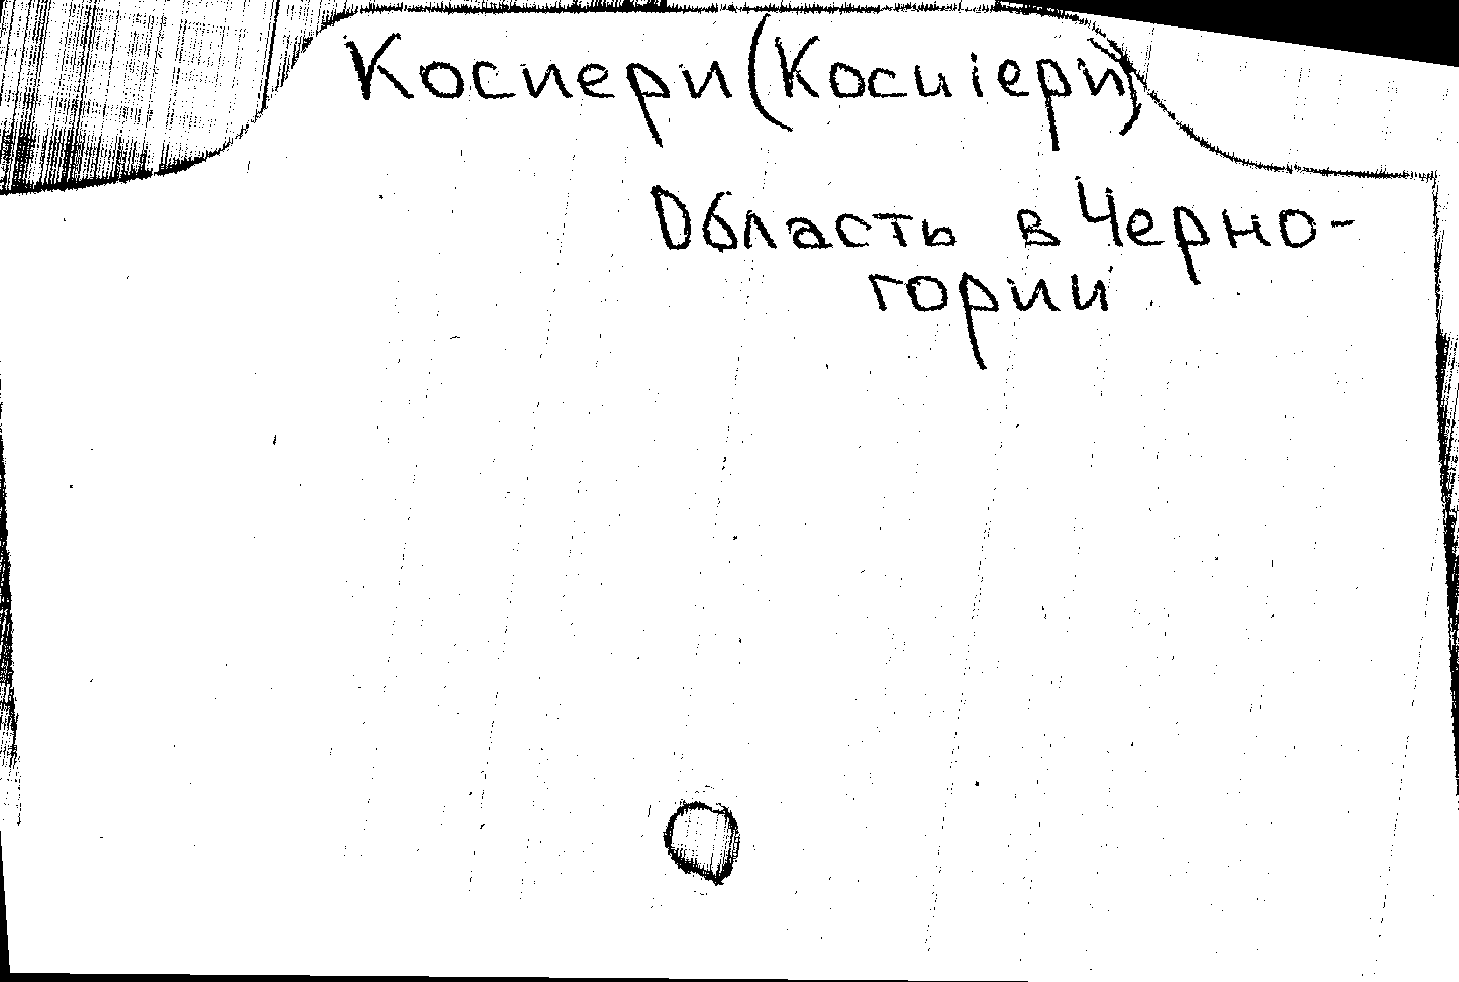 Косиери (Косиіери)
Область в Черно-
гории